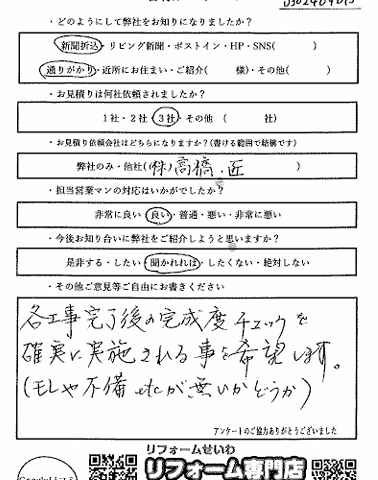 ・どのようにして弊社をお知りになりましたか？
新聞折込・リビング新聞・ポストイン・HP・SNS( )
通りがかり・近所にお住まい・ご紹介( 様)・その他( )
・お見積りは何社依頼されましたか？
1社・2社・3社・その他 ( 社)
・お見積り依頼会社はどちらになりますか？(書ける範囲で結構です)
弊社のみ・他社((株)高橋・匠
・担当営業マンの対応はいかがでしたか？
非常に良い・良い・普通・悪い・非常に悪い
・今後お知り合いに弊社をご紹介しようと思いますか？
是非する・したい・聞かれれば・したくない・絶対しない
・その他ご意見等ご自由にお書きください
各工事完了後の完成度チェックを
確実に実施される事を希望します。
(モレや不備etcが無いかどうか)
アンケートのご協力ありがとうございました
リフォームせいわ
リフォーム専門店